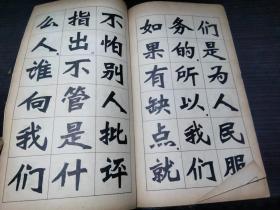 们是为人民服
务的、所以、我们
如果有缺点就
不怕别人批评
指出不管是什
么人、谁向我们